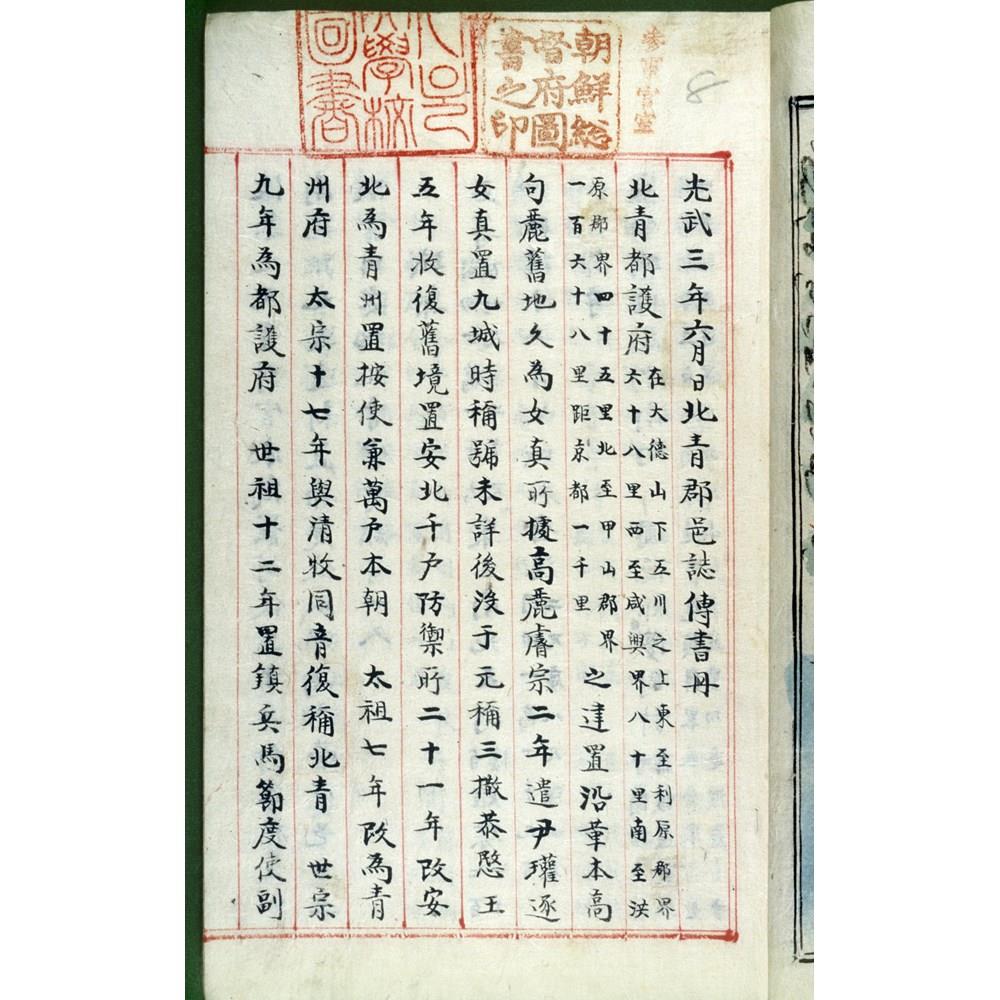 參事官室
朝鮮総
督府圖
書之印
大學校
圖書
8
光武三年六月日北青郡邑誌傳書冊
北青都護府
在大德山下五川之上東至利原郡界
六十八里西至咸興界八十里南至洪
原郡界四十五里北至甲山郡界
一百六十八里距京都一千里
之建置沿革本高
句麗舊地久為女真所據高麗睿宗二年遣尹瓘逐
女真置九城時稱號未詳後沒于元稱三撒恭愍王
五年收復舊境置安北千戶防禦所二十一年改安
北為青州置按使兼萬戶本朝 太祖七年改為青
州府 太宗十七年與清牧同音復稱北青 世宗
九年為都護府 世祖十二年置鎮兵馬節度使副